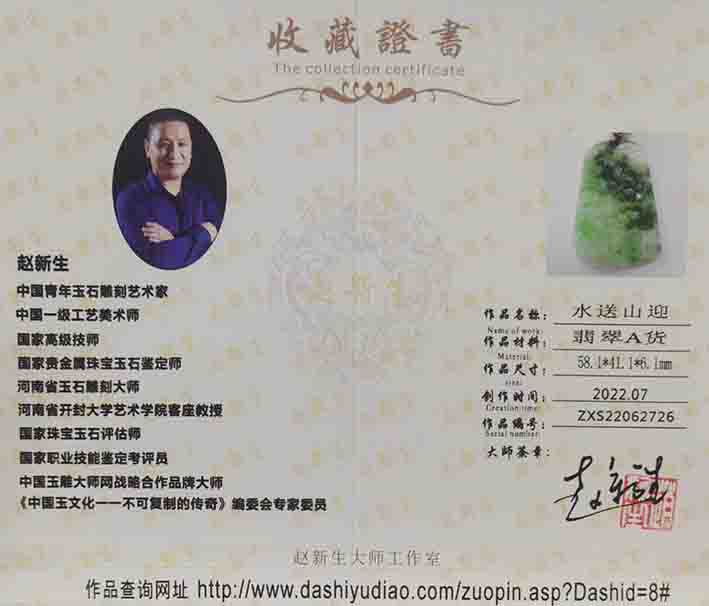 收藏證書
The collection certificate
赵新生
中国青年玉石雕刻艺术家
中国一级工艺美术师
国家高级技师
国家贵金属珠宝玉石鉴定师
河南省玉石雕刻大师
河南省开封大学艺术学院客座教授
国家珠宝玉石评估师
国家职业技能鉴定考评员
中国玉雕大师网战略合作品牌大师
《中国玉文化——不可复制的传奇》编委会专家委员
作品名称: 水送山迎
Name of work:
作品材料: 翡翠A货
Material:
作品尺寸: 58.1*41.1*6.1mm
size:
创作时间: 2022.07
Creation time:
作品编号: ZXS22062726
Serial number:
大师签章:
赵新生
赵新生大师工作室
作品查询网址 http://www.dashiyudiao.com/zuopin.asp?Dashid=8#